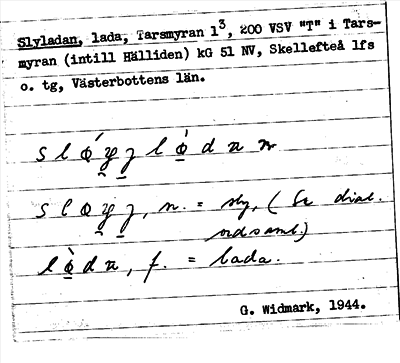 Slyladan, lada, Tarsmyran 1³, 200 VSV "T" i Tars-
myran (intill Hälliden) kG 51 NV, Skellefteå lfs
o. tg, Västerbottens län.
n. = sly, (Se dial.
ordsaml.)
f. = lada.
G. Widmark, 1944.